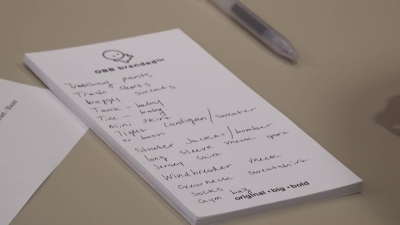 OBB branded
Track pants
Track shorts
baggy sweats
Tank - baby
Tee - baby
mini skirt
Tight Cardigan/sweater
boot
Jacket/bomber
long sleeve vneck sport
Jersey shirt
Windbreaker vneck
Crewneck sweatshirt
Socks
Gym bag
original • big • bold